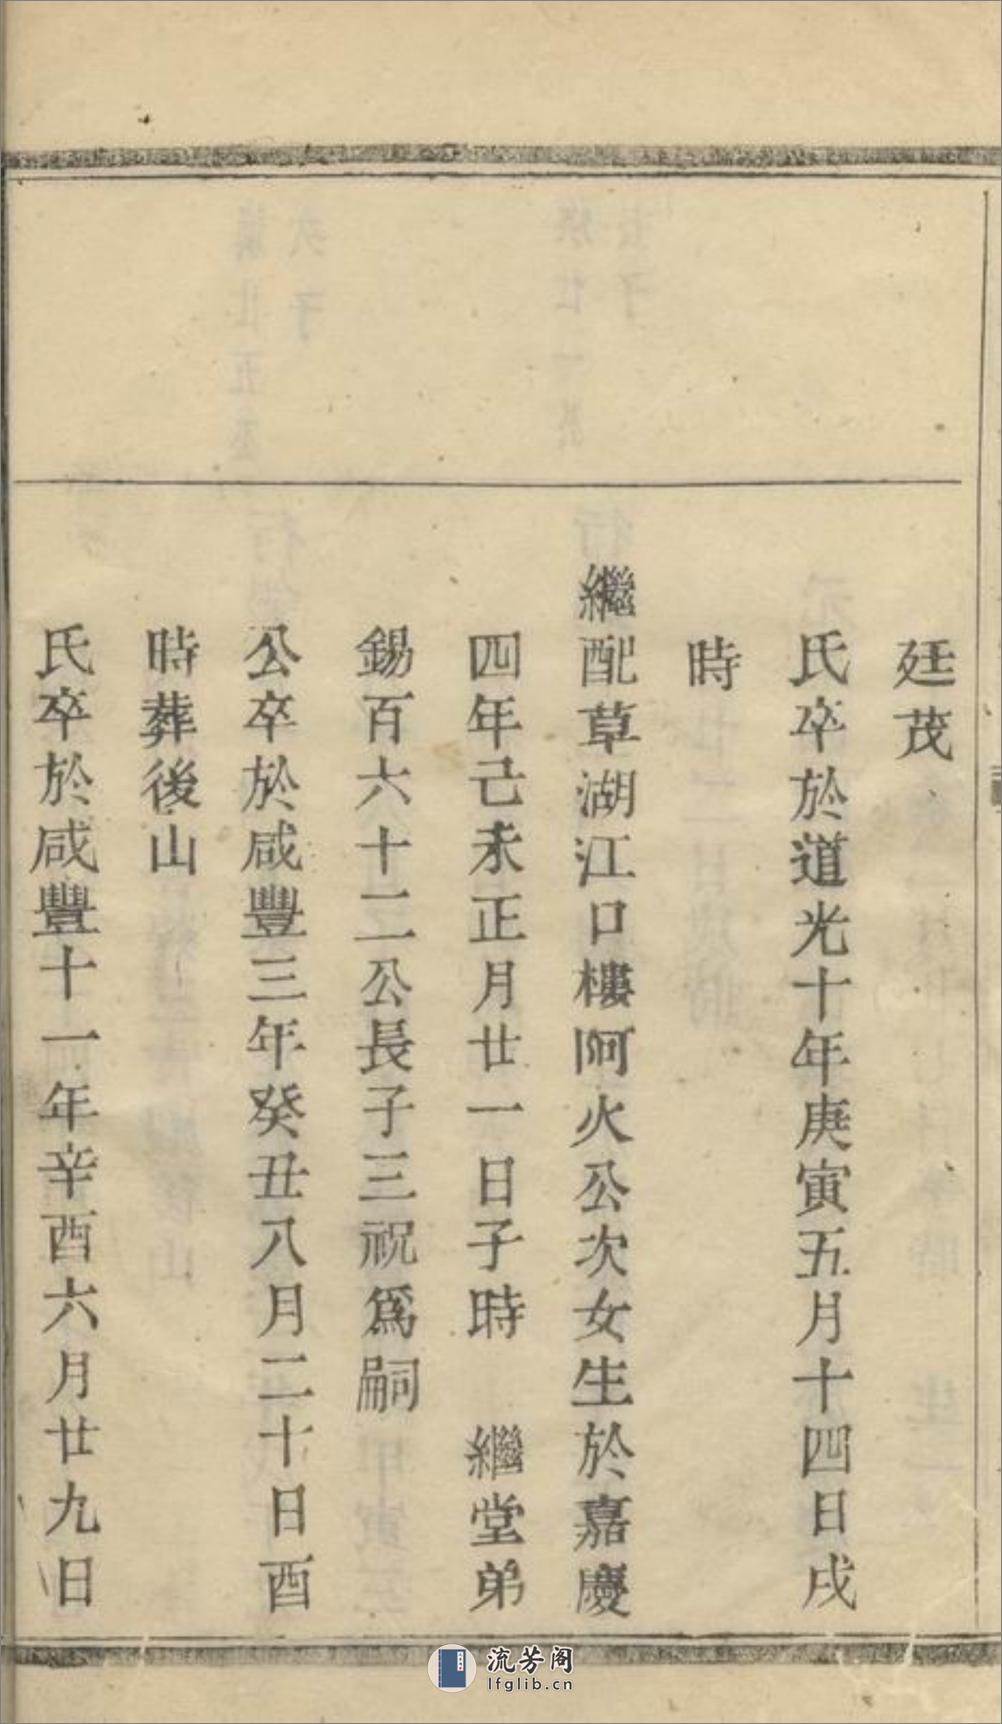 廷茂
氏卒於道光十年庚寅五月十四日戌
時
繼配草湖江口樓阿火公次女生於嘉慶
四年己未正月廿一日子時　繼堂弟
錫百六十二公長子三祝爲嗣
公卒於咸豐三年癸丑八月二十日酉
時葬後山
氏卒於咸豐十一年辛酉六月廿九日
流芳阁
lfglib.cn